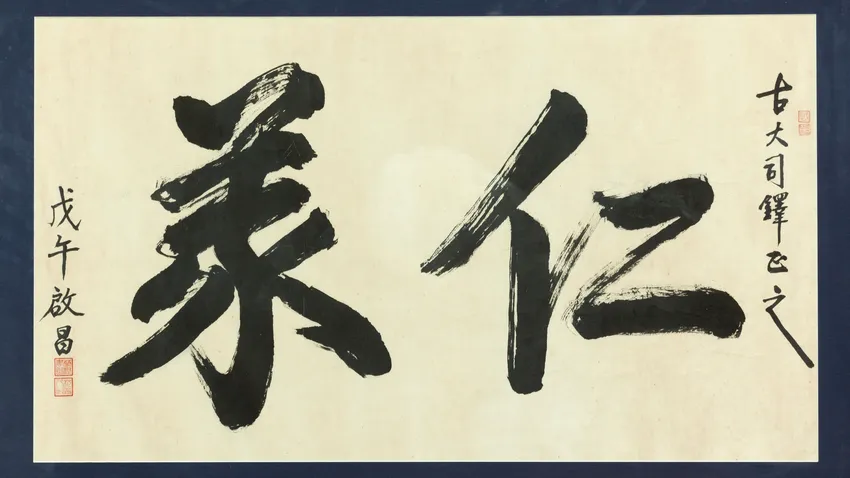 古大司鐸正之
仁
戊午 啟昌